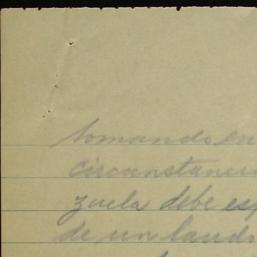 tomando en
circunstanci
zuela debe esp
de un laudo